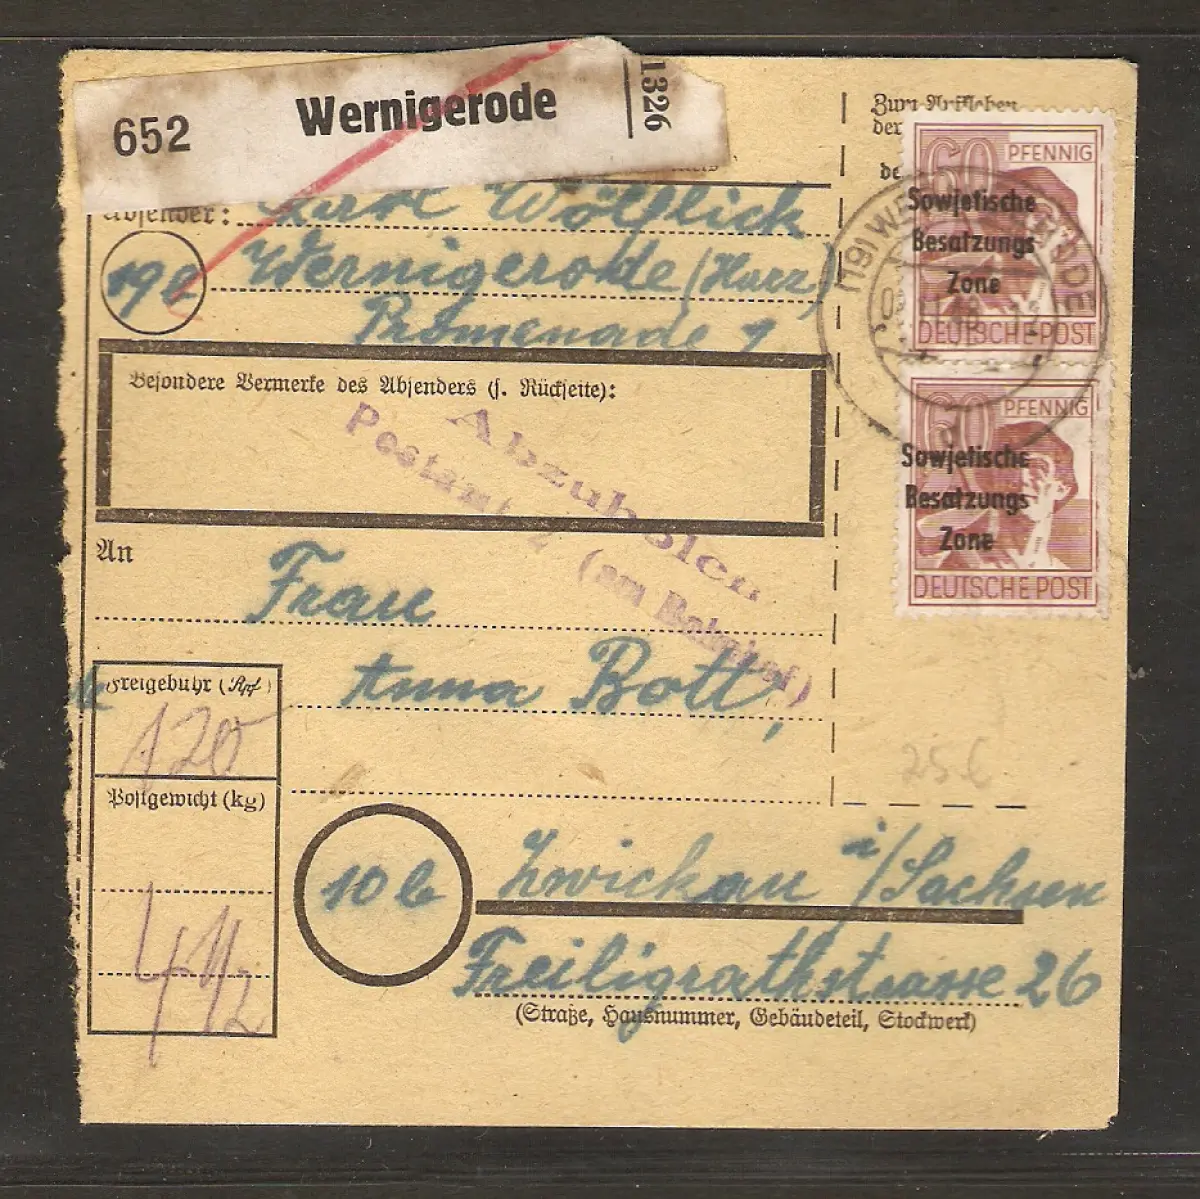 652 Wernigerode 1326
Absender: Karl Wölflick
19b Wernigerode (Harz)
Promenade 9
Besondere Vermerke des Absenders (s. Rückseite):
Abzuholen
Postamt 2 (am Bahnhof)
An
Frau
Anna Bott,
Freigebühr (Rpf)
120
Postgewicht (kg)
4 1/2
10b Zwickau i/Sachsen
Freiligrathstrasse 26
(Straße, Hausnummer, Gebäudeteil, Stockwerk)
Zum Aufkleben
der
60 PFENNIG
Sowjetische
Besatzungs
Zone
DEUTSCHE POST
60 PFENNIG
Sowjetische
Besatzungs
Zone
DEUTSCHE POST
25€